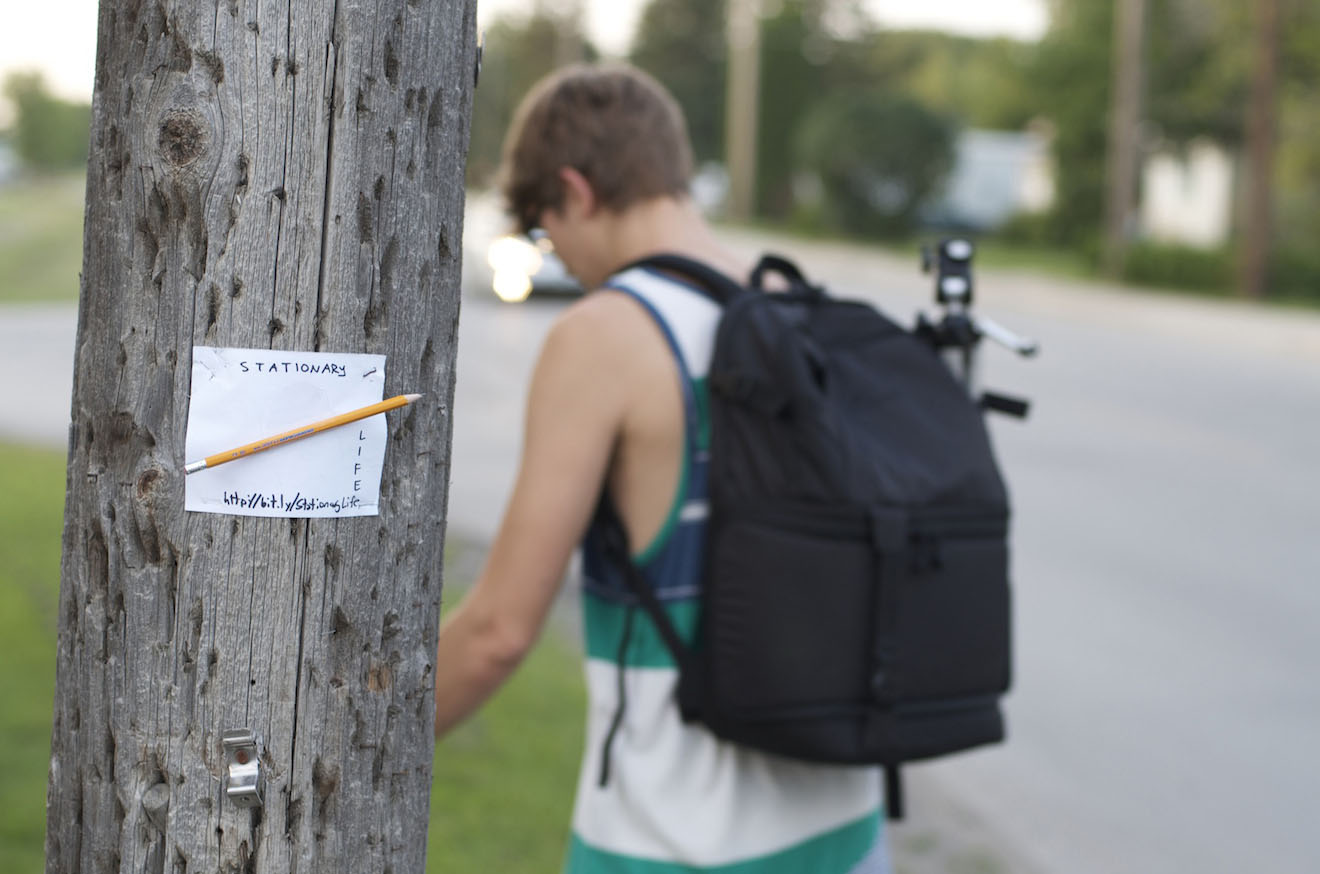 STATIONARY
LIFE
http://bit.ly/StationaryLife